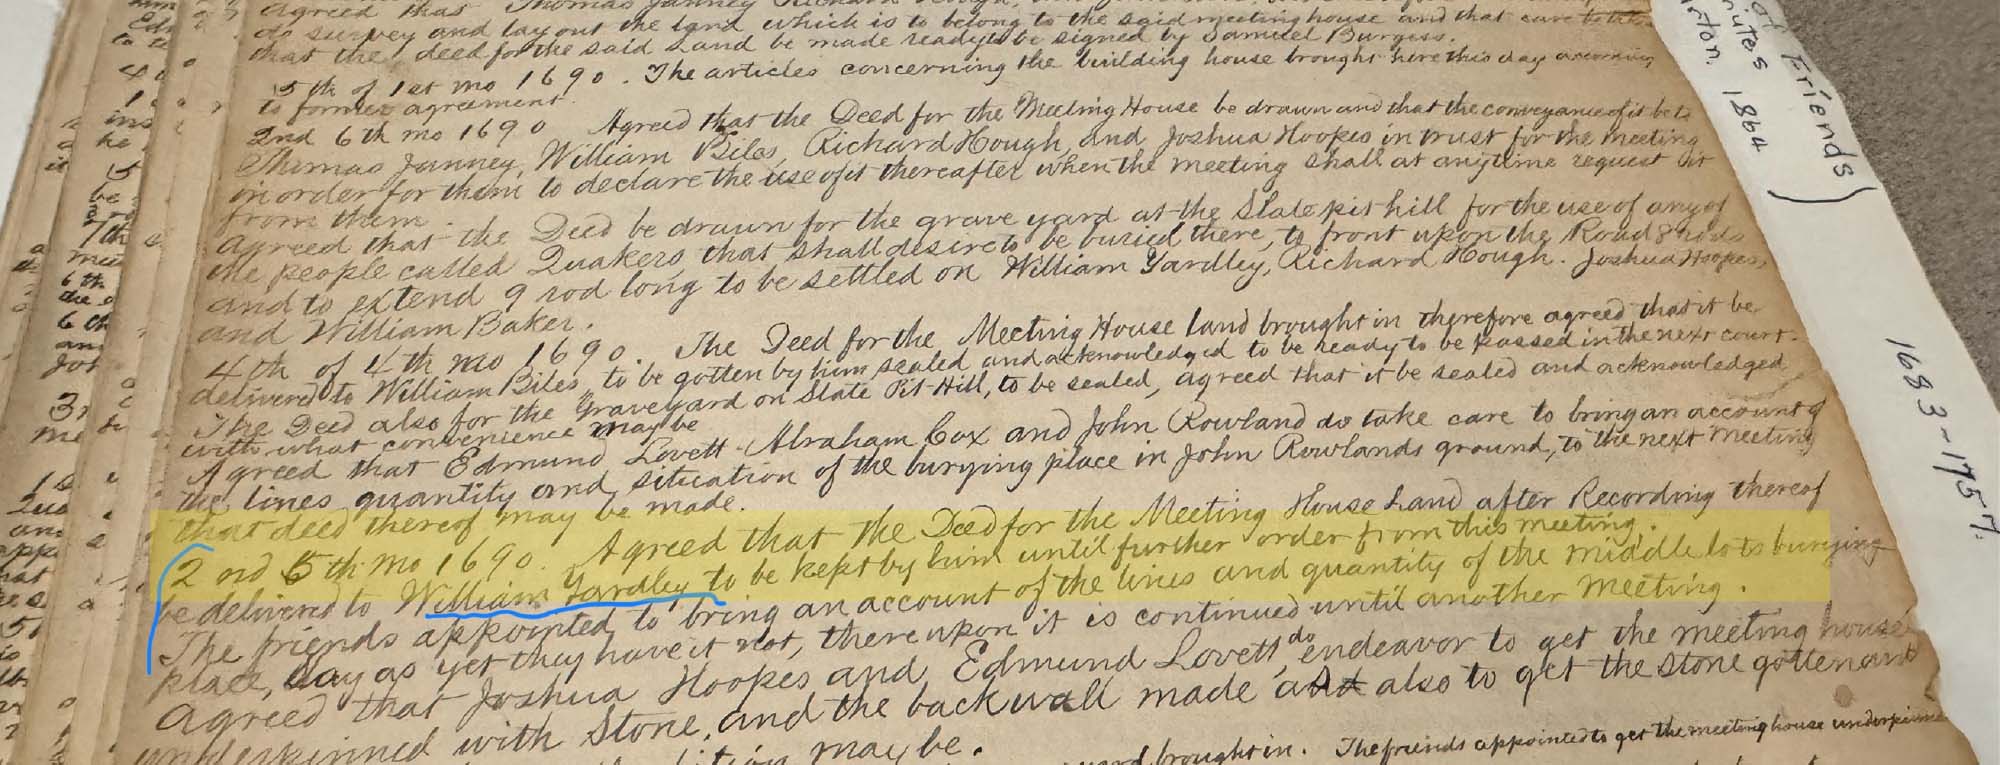 agreed that Thomas Janney Richard
do survey and lay out the land which is to belong to the said meeting house and that care
that the deed for the said Land be made ready to be signed by Samuel Burgess.
5th of 1st mo 1690. The articles concerning the building house brought here this day according
to former agreement.
2nd 6th mo 1690 Agreed that the Deed for the Meeting House be drawn and that the conveyance of it be to
Thomas Janney, William Biles, Richard Hough, and Joshua Hoopes in trust for the meeting
in order for them to declare the use of it thereafter when the meeting shall at anytime request it
from them.
agreed that the Deed be drawn for the grave yard at the Slate pit hill for the use of any of
the people called Quakers that shall desire to be buried there, to front upon the Road 8 rods
and to extend 9 rod long to be settled on William Yardley, Richard Hough. Joshua Hoopes,
and William Baker.
4th of 4th mo 1690. The Deed for the Meeting House land brought in therefore agreed that it be
delivered to William Biles, to be gotten by him sealed and acknowledged to be ready to be passed in the next court.
The Deed also for the Graveyard on Slate Pit Hill, to be sealed, agreed that it be sealed and acknowledged
with what convenience may be
Agreed that Edmund Lovett Abraham Cox and John Rowland do take care to bring an account of
the lines quantity and situation of the burying place in John Rowlands ground, to the next meeting
that deed thereof may be made.
2nd 5th mo 1690. Agreed that the Deed for the Meeting House Land after Recording thereof
be delivered to William Yardley to be kept by him until further order from this meeting.
The friends appointed to bring an account of the lines and quantity of the middle lots burying
place, say as yet they have it not, thereupon it is continued until another Meeting.
Agreed that Joshua Hoopes and Edmund Lovett do endeavor to get the meeting house
underpinned with Stone, and the back wall made and also to get the stone gotten and
may be.
brought in. The friends appointed to get the meeting house underpinned
of Friends)
minutes 1864
1683-1757.